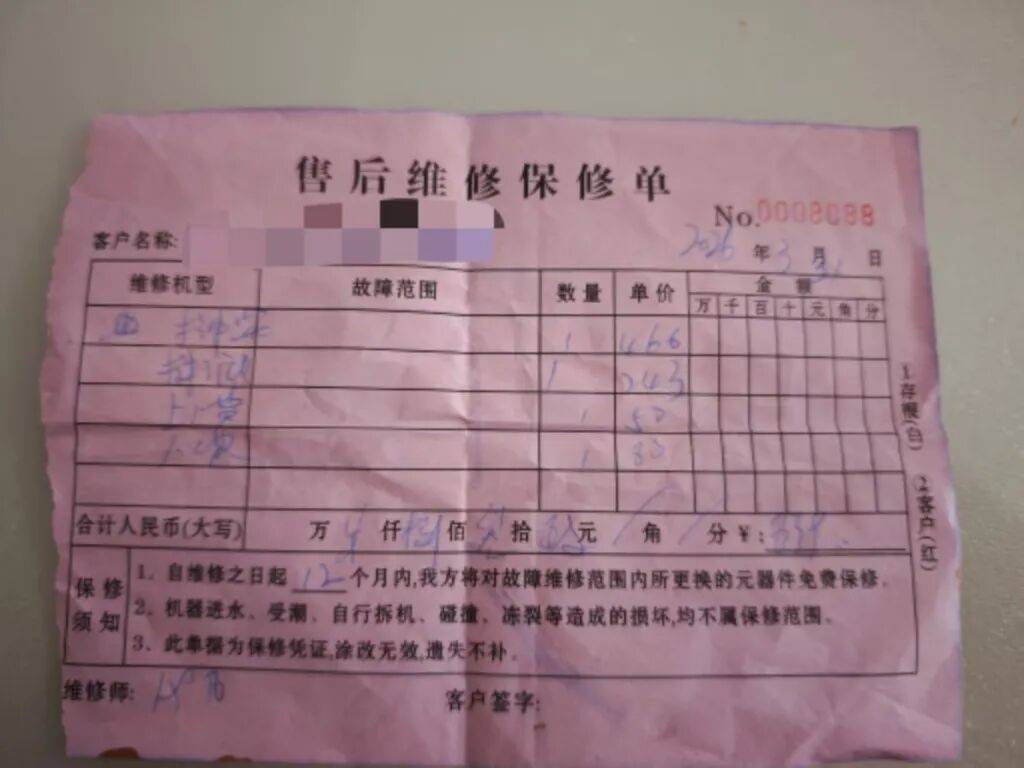 售后维修保修单
No.0008088
客户名称: 2026年3月31日
维修机型 故障范围 数量 单价 金额
万 千 百 十 元 角 分
1 466
1 243
1 50
1 80
合计人民币(大写) 万 仟 佰 拾 元 角 分 ¥:
保修须知
1、自维修之日起12个月内,我方将对故障维修范围内所更换的元器件免费保修。
2、机器进水、受潮、自行拆机、碰撞、冻裂等造成的损坏,均不属保修范围。
3、此单据为保修凭证,涂改无效,遗失不补。
维修师: 客户签字:
1.存根(白) 2.客户(红)